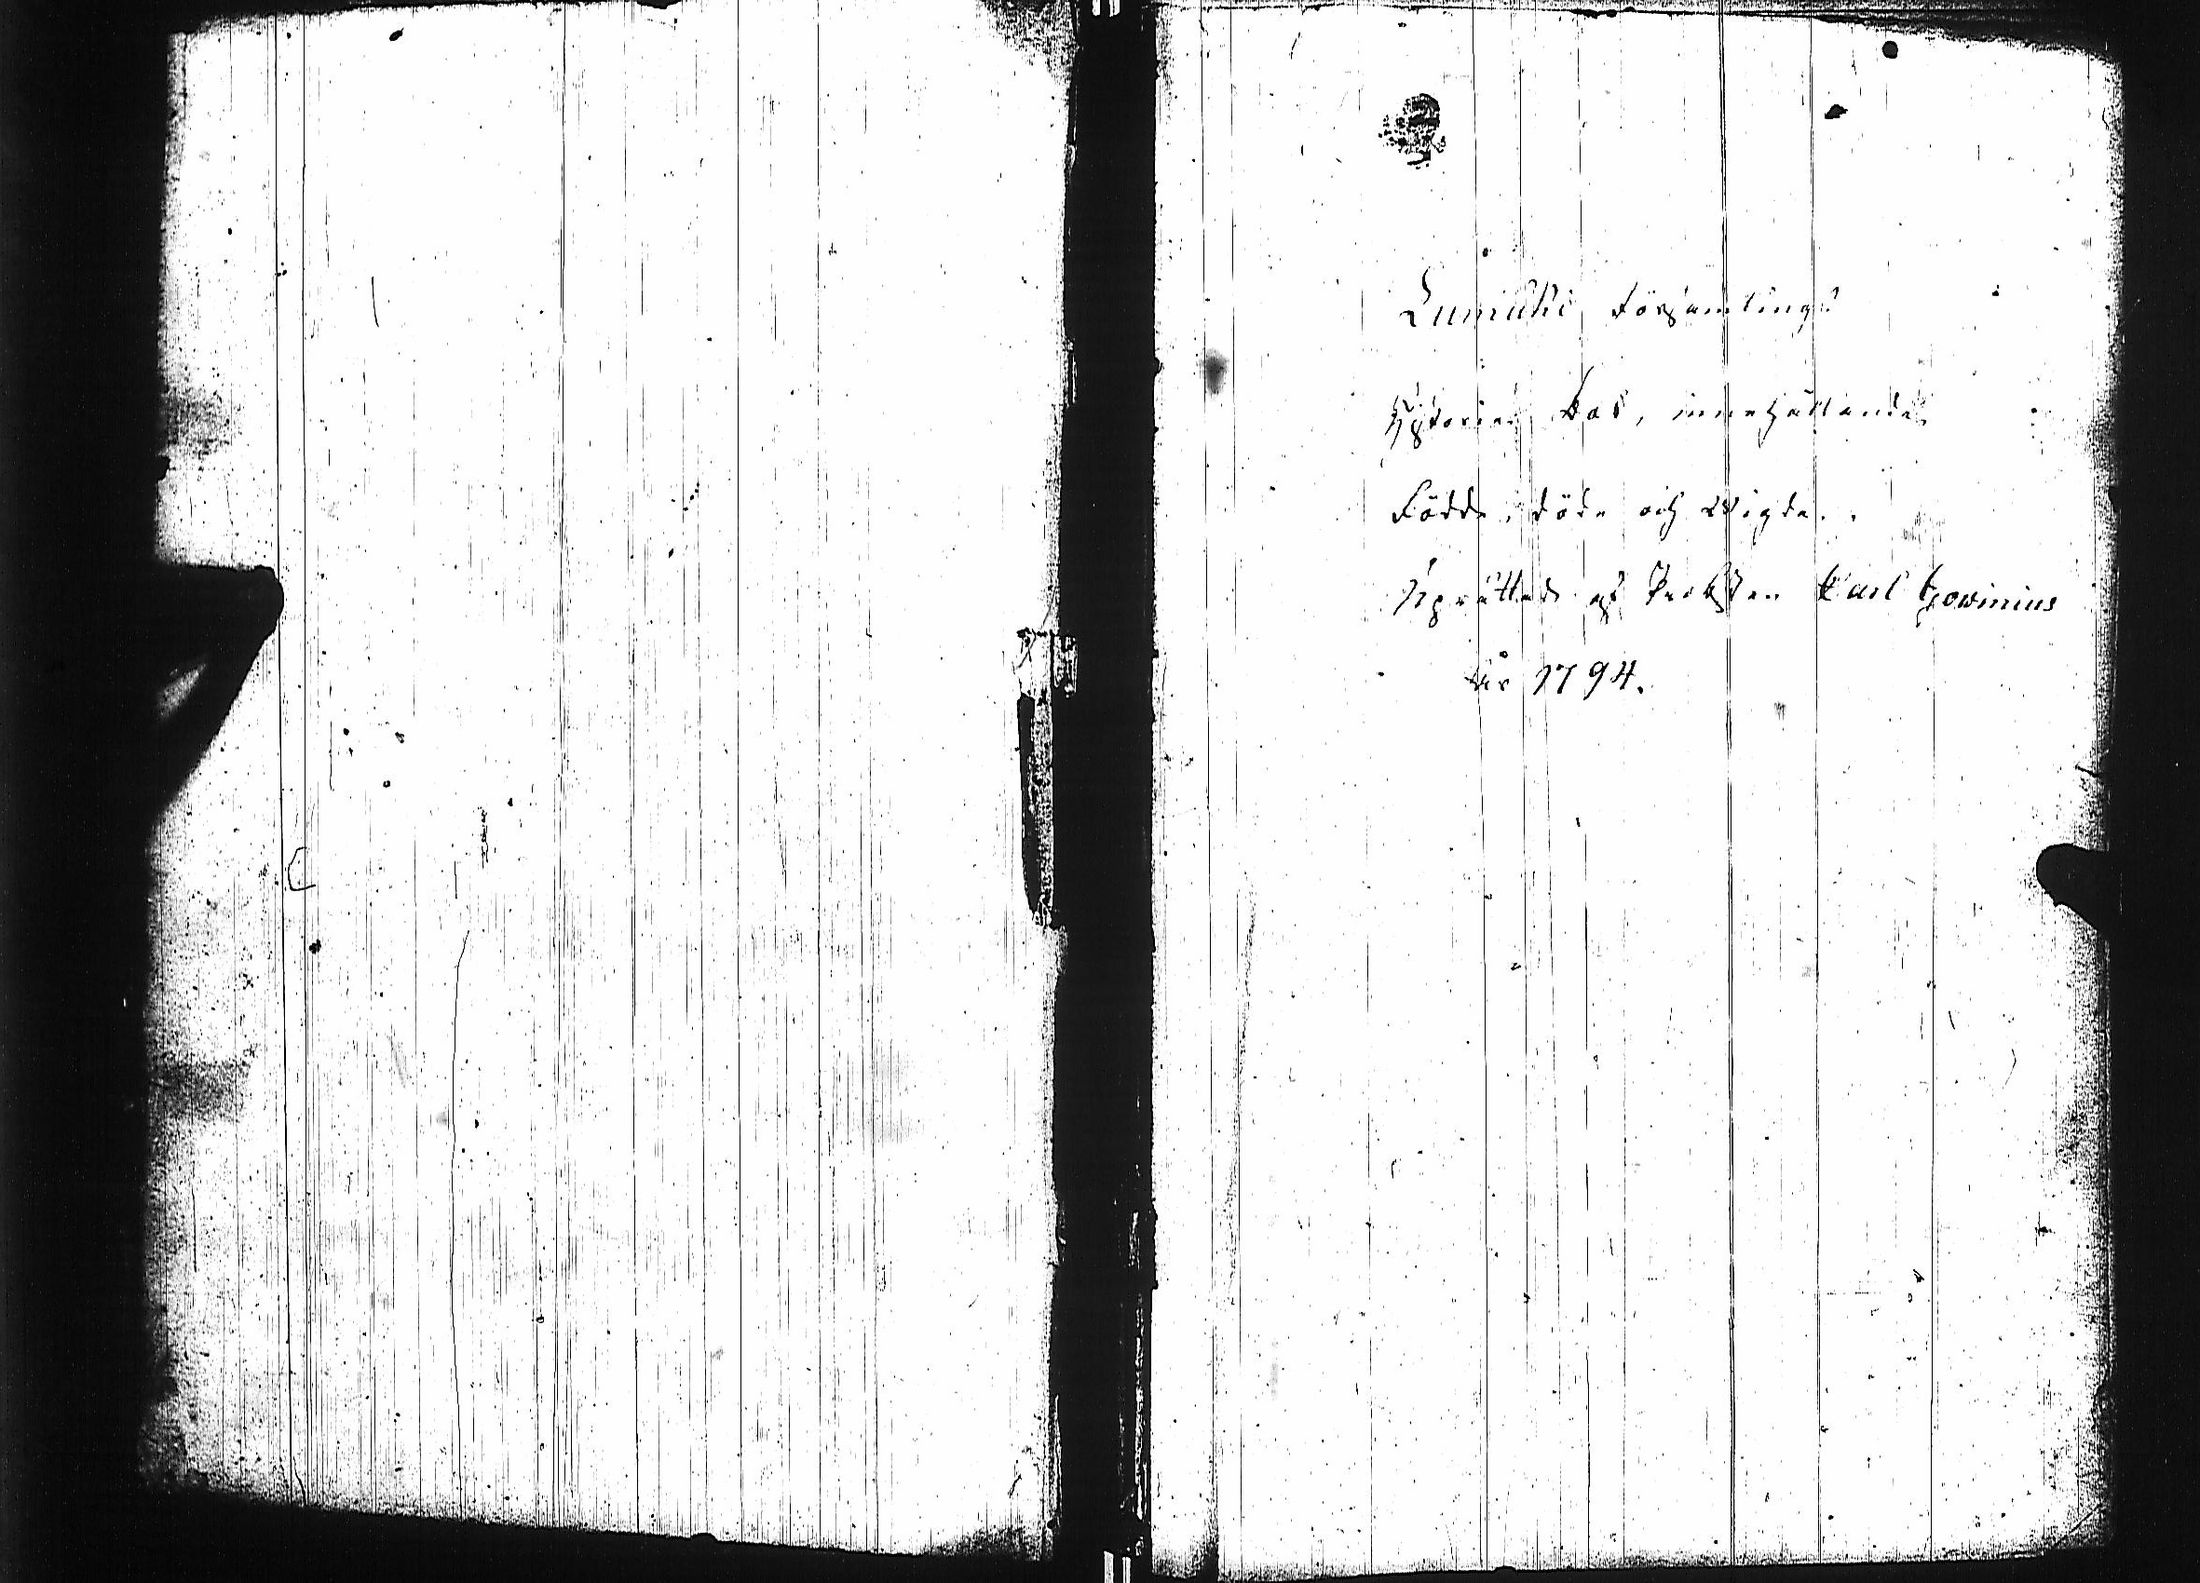 Lumichi Församlings
Hystorie Bok, innehållande
Födde, döde och wigde.
Uprättad af Prosten Carl Gowinius
år 1794.